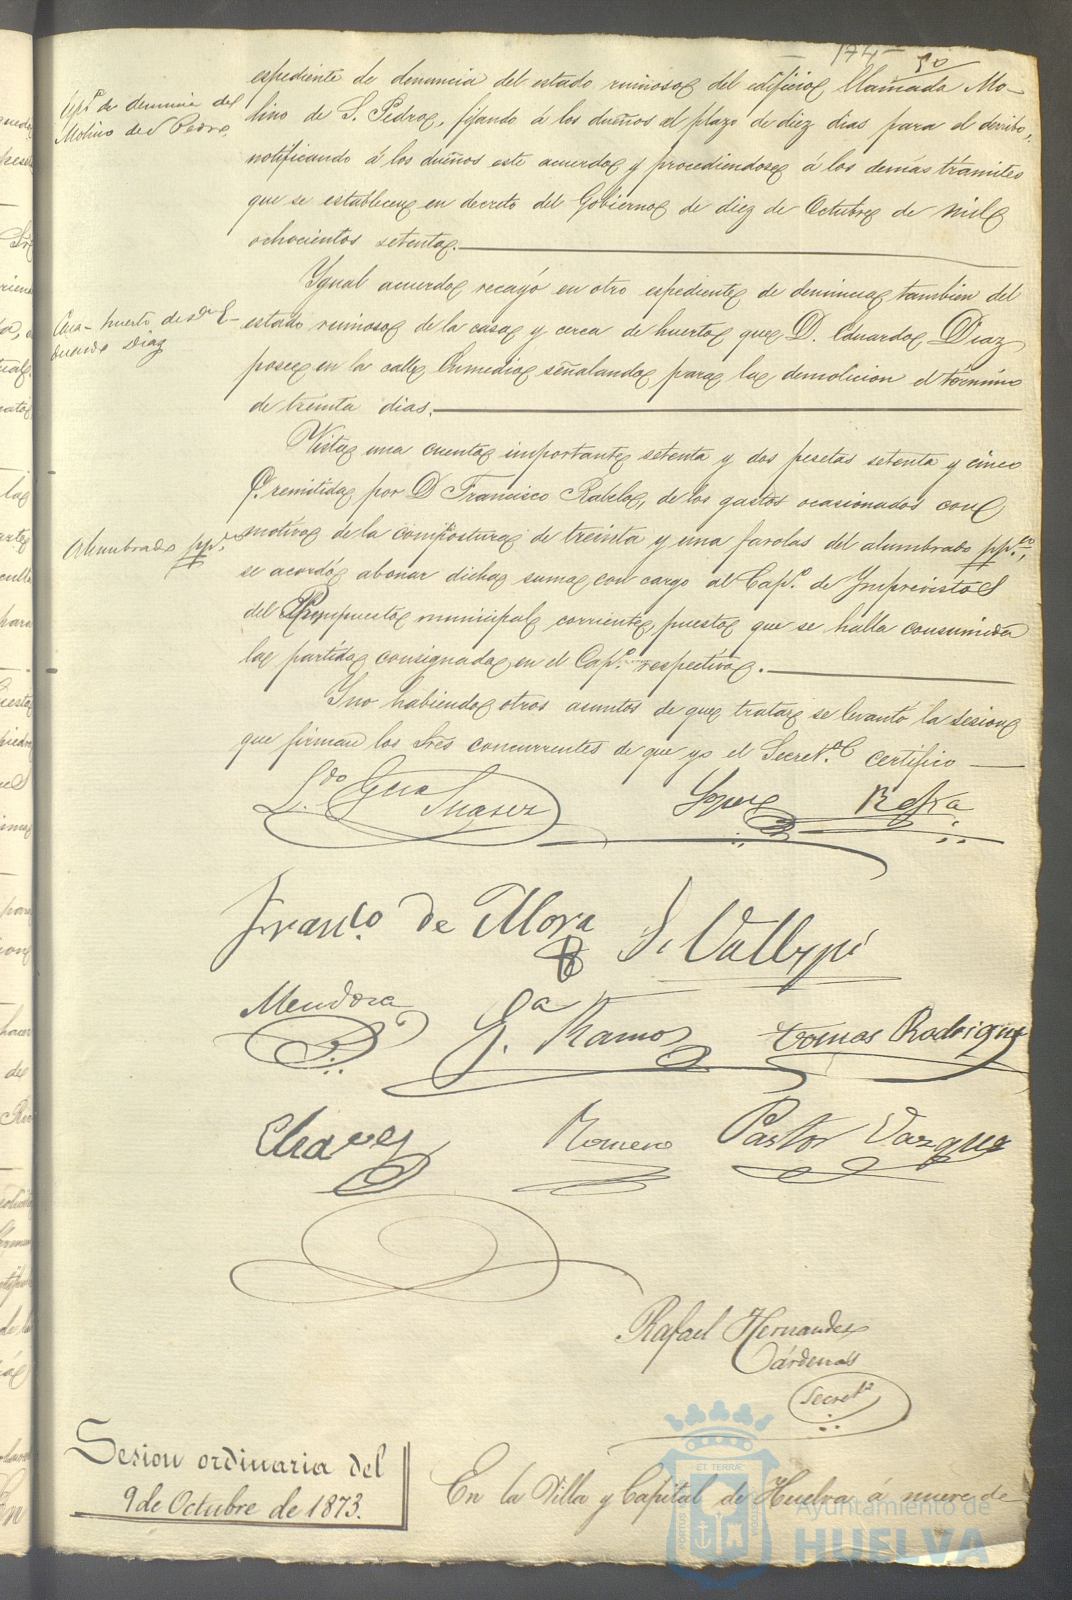 174
50
Espte de denuncia del
Molino de S Pedro.
espediente de denuncia del estado ruinoso del edificio llamado Mo-
lino de S. Pedro, fijando á los dueños el plazo de diez dias para el derribo,
notificando á los dueños este acuerdo y procediendose á los demás trámites
que se establecen en decreto del Gobierno de diez de Octubre de mil
ochocientos setenta.
Casa-huerto de Dn E-
duardo Diaz
Ygual acuerdo recayó en otro espediente de denuncia tambien del
estado ruinoso de la casa y cerca de huerto que D. Eduardo Diaz
posee en la calle Enmedio señalando para la demolicion el término
de treinta dias.
Vista una cuenta importante setenta y dos pesetas setenta y cinco
Cs. remitida por D Francisco Rabelo, de los gastos ocasionados con
Alumbrado ppco
motivo de la compostura de treinta y una farolas del alumbrado ppco,
se acordó abonar dicha suma con cargo al Capo. de Ymprevistos
del Presupuesto municipal corriente, puesto que se halla consumida
la partida consignada en el Capo. respectivo.
Y no habiendo otros asuntos de que tratar se levantó la sesion
que firman los Sres concurrentes de que yo el Secreto. certifico
Ldo Gcia Suarez
Lopez
Francco. de Mora
S. Vallespi
Mendoza
Ga. Ramos
Tomas Rodriguez
Chaves
Romero
Pastor
Vazquez
Rafael Hernandez
Cárdenas
Secreto
Sesion ordinaria del
9 de Octubre de 1873.
En la Villa y Capital de Huelva á nueve de
Ayuntamiento de
HUELVA